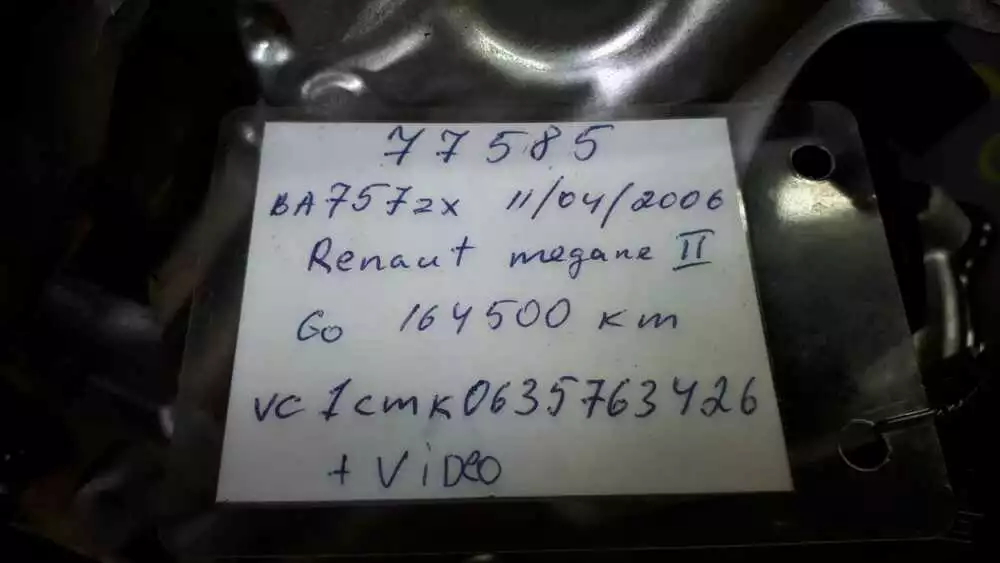 77585
BA757ZX 11/04/2006
Renaut megane II
Go 164500 km
VC1cmk0635763426
+ VIDEO